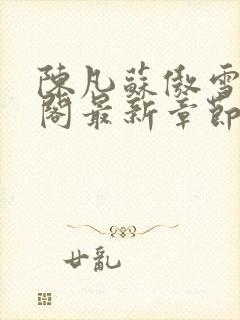 陳凡蘇傲雪
閣最新章節
廿亂